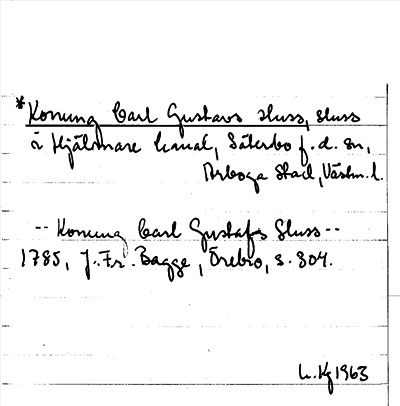 *Konung Carl Gustavs sluss, sluss
i Hjälmare kanal, Säterbo f.d. sn,
Arboga stad, Västm. l.
-- Konung Carl Gustafs Sluss --
1785, J. Fr. Bagge, Örebro, s. 304.
1963